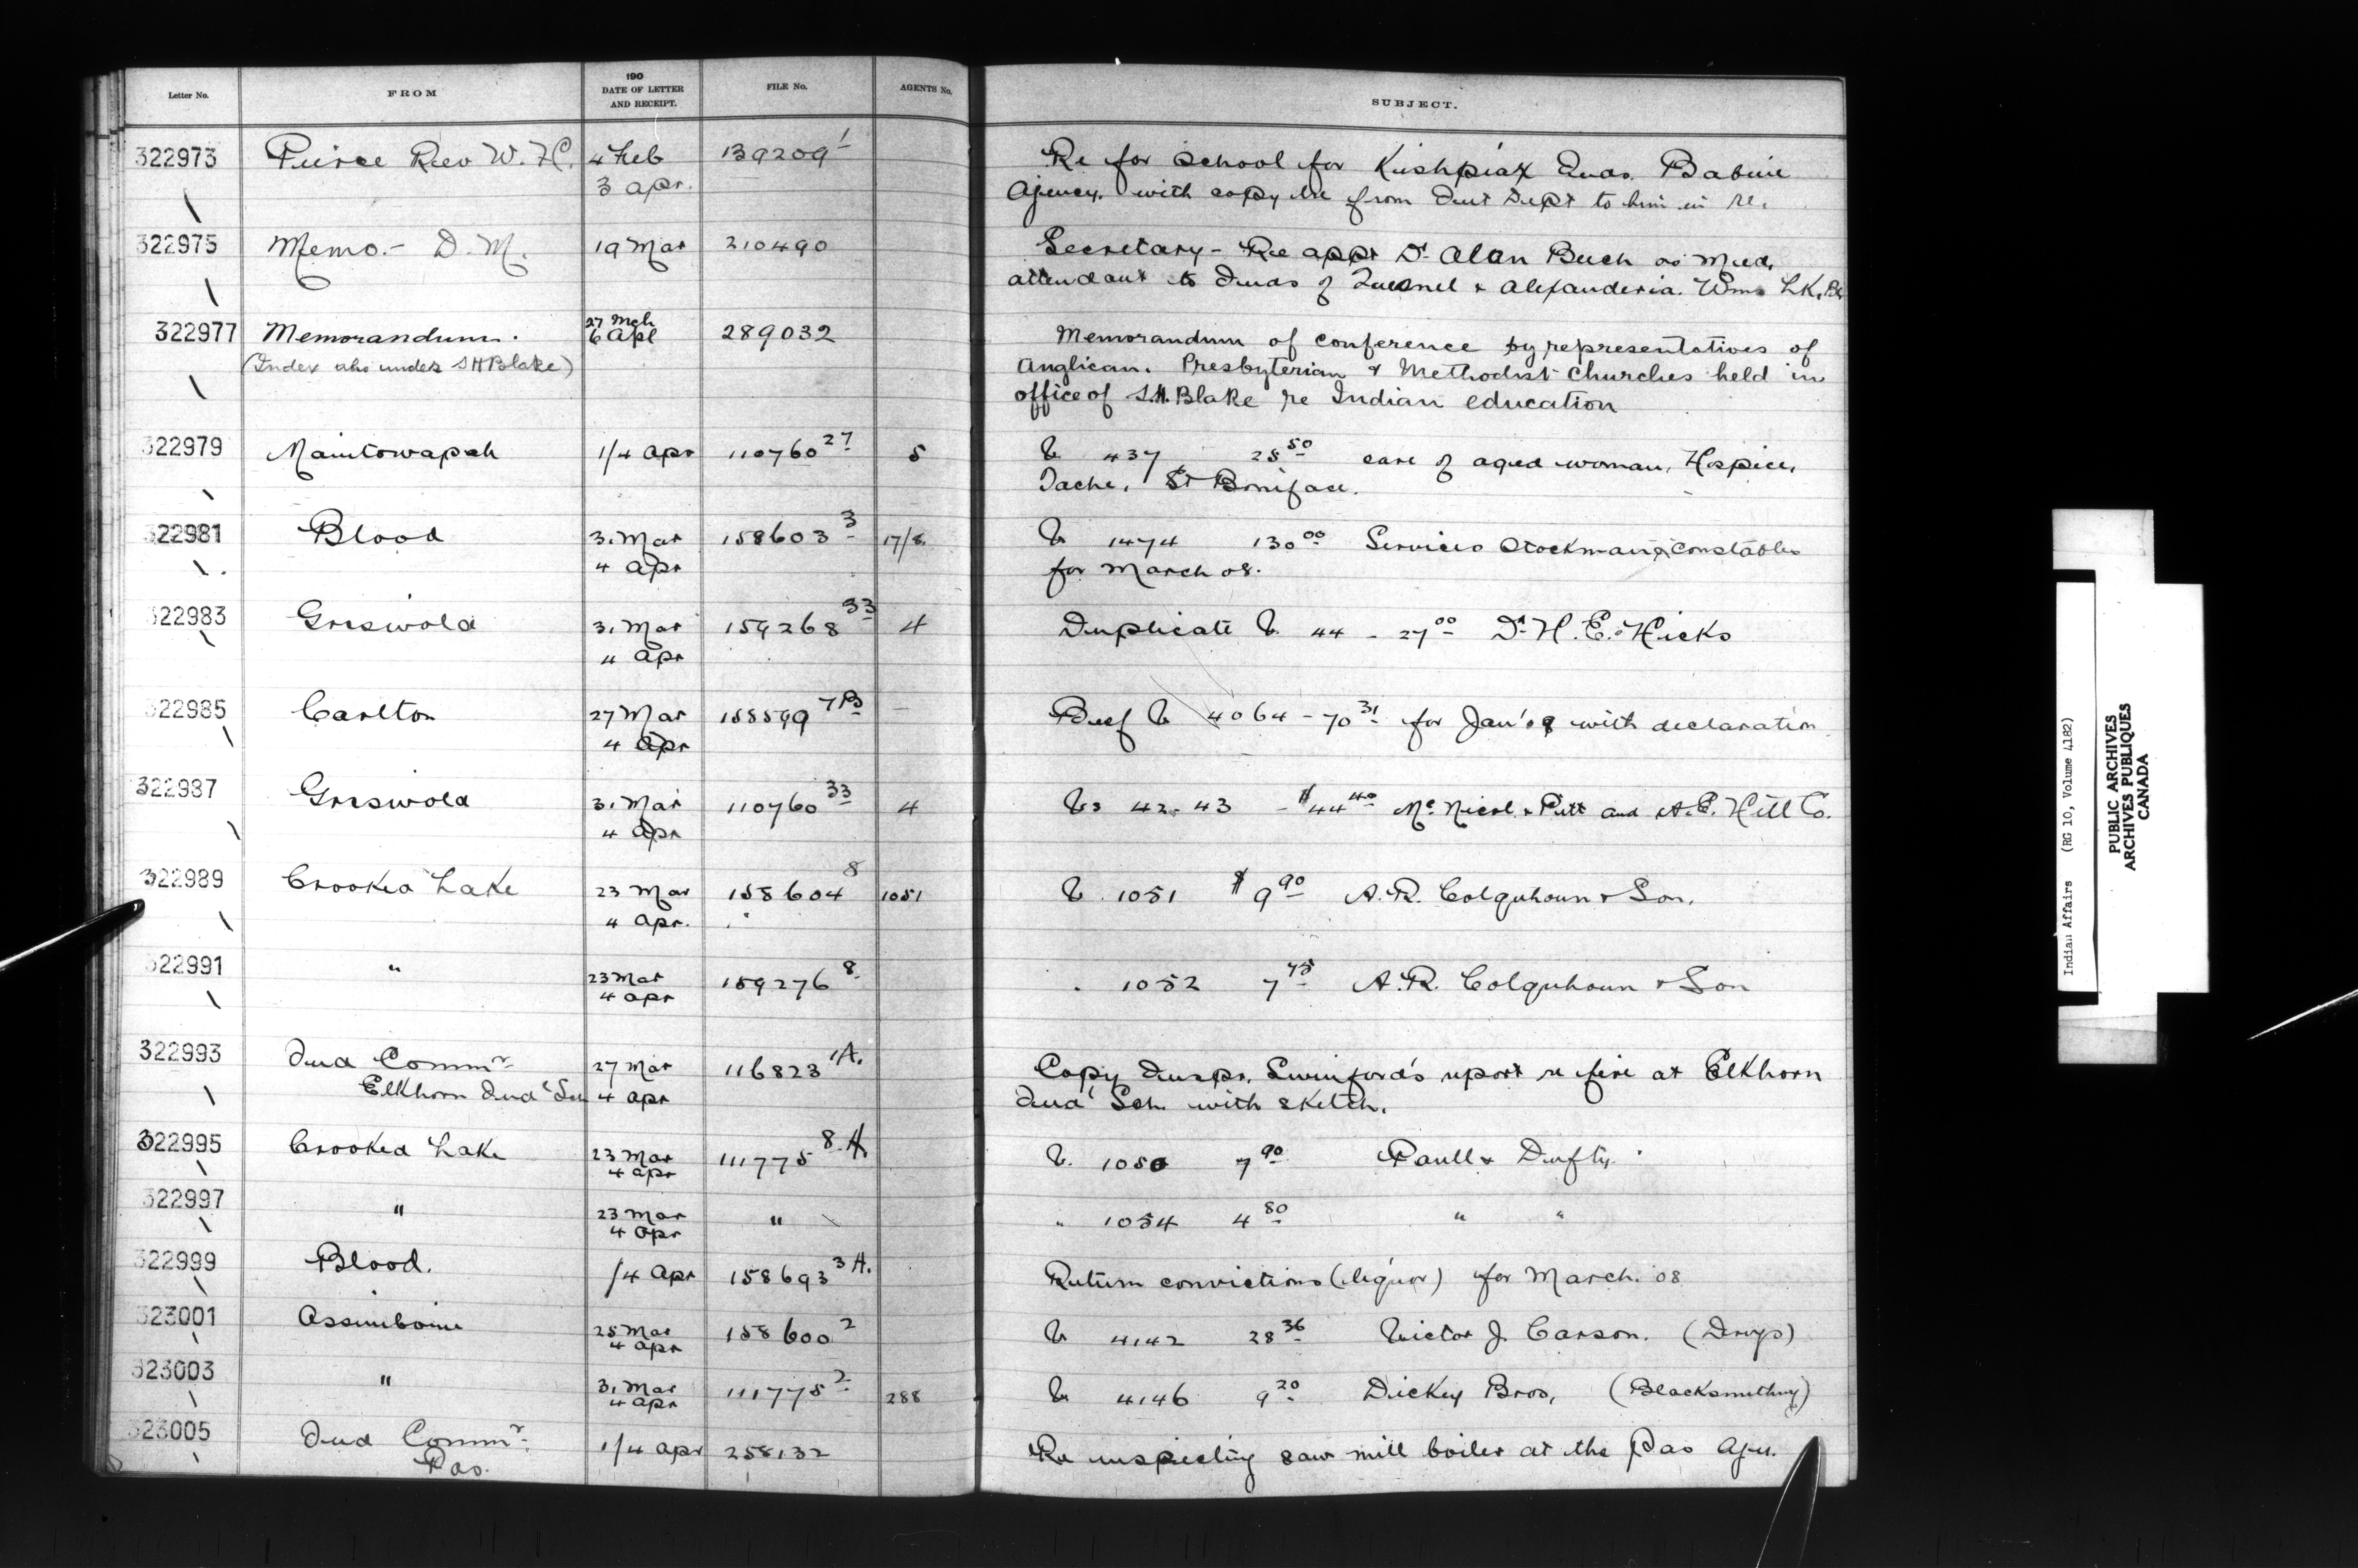 Letter No. FROM 190 DATE OF LETTER AND RECEIPT. FILE No. AGENTS No. SUBJECT.
322973 Peirce Rev W. H. 4 Feb 139209 1 Re for school for Kishpiax Inds. Babine
3 Apr. Agency. with copy lre from Dept to him in re.
322975 Memo. - D. M. 19 Mar 210490 Secretary - Re appt Dr Alan Beech as Med.
attendant to Inds of Quesnel & Alexanderia. Wms LK.
322977 Memorandum. 27 Mch 6 Apl 289032 Memorandum of conference by representatives of
(Index also under S H Blake) Anglican. Presbyterian & Methodist Churches held in
office of S.H. Blake re Indian education
322979 Manitowapah 1/4 Apr 110760 27 5 V 437 28 50 care of aged woman, Hospice
Tache, St Boniface.
322981 Blood 31 Mar 158603 3 17/8 V 1474 130 00 Services Stockman & Constables
4 Apr for March 08.
322983 Griswold 31 Mar 159268 33 4 Duplicate V. 44 - 27 00 Dr H. E. Hicks
4 Apr
322985 Carlton 27 Mar 158599 7B — Beef V 4064 - 70 31 for Jan'08 with declaration
4 Apr
322987 Griswold 31 Mar 110760 33 4 Vs 42-43 - $44 40 McNicol & Pitt and A.E. Hill Co.
4 Apr
322989 Crooked Lake 23 Mar 158604 8 1051 V. 1051 $9 90 A.R. Colquhoun & Son.
4 Apr.
322991 " 23 Mar 159276 8 . 1052 7 75 A.R. Colquhoun & Son
4 Apr
322993 Ind Commr 27 Mar 116823 1A. Copy Inspr. Swinford's report re fire at Elkhorn
Elkhorn Ind Sch 4 Apr Ind Sch. with sketch.
322995 Crooked Lake 23 Mar 111775 8.A. V. 1050 7 90 Paull & Dufty
4 Apr
322997 " 23 Mar " " 1054 4 80 " "
4 Apr
322999 Blood. 1/4 Apr 158693 3A. Return convictions (liquor) for March. 08
323001 Assiniboine 25 Mar 158600 2 V 4142 28 36 Victor J. Carson. (Drugs)
4 Apr
323003 " 31 Mar 111775 2 288 V 4146 9 20 Dickey Bros, (Blacksmithing)
4 Apr
323005 Ind Commr 1/4 Apr 258132 Re inspecting saw mill boiler at the Pas Agn.
Pas.
Indian Affairs (RG 10, Volume 4182)
PUBLIC ARCHIVES
ARCHIVES PUBLIQUES
CANADA